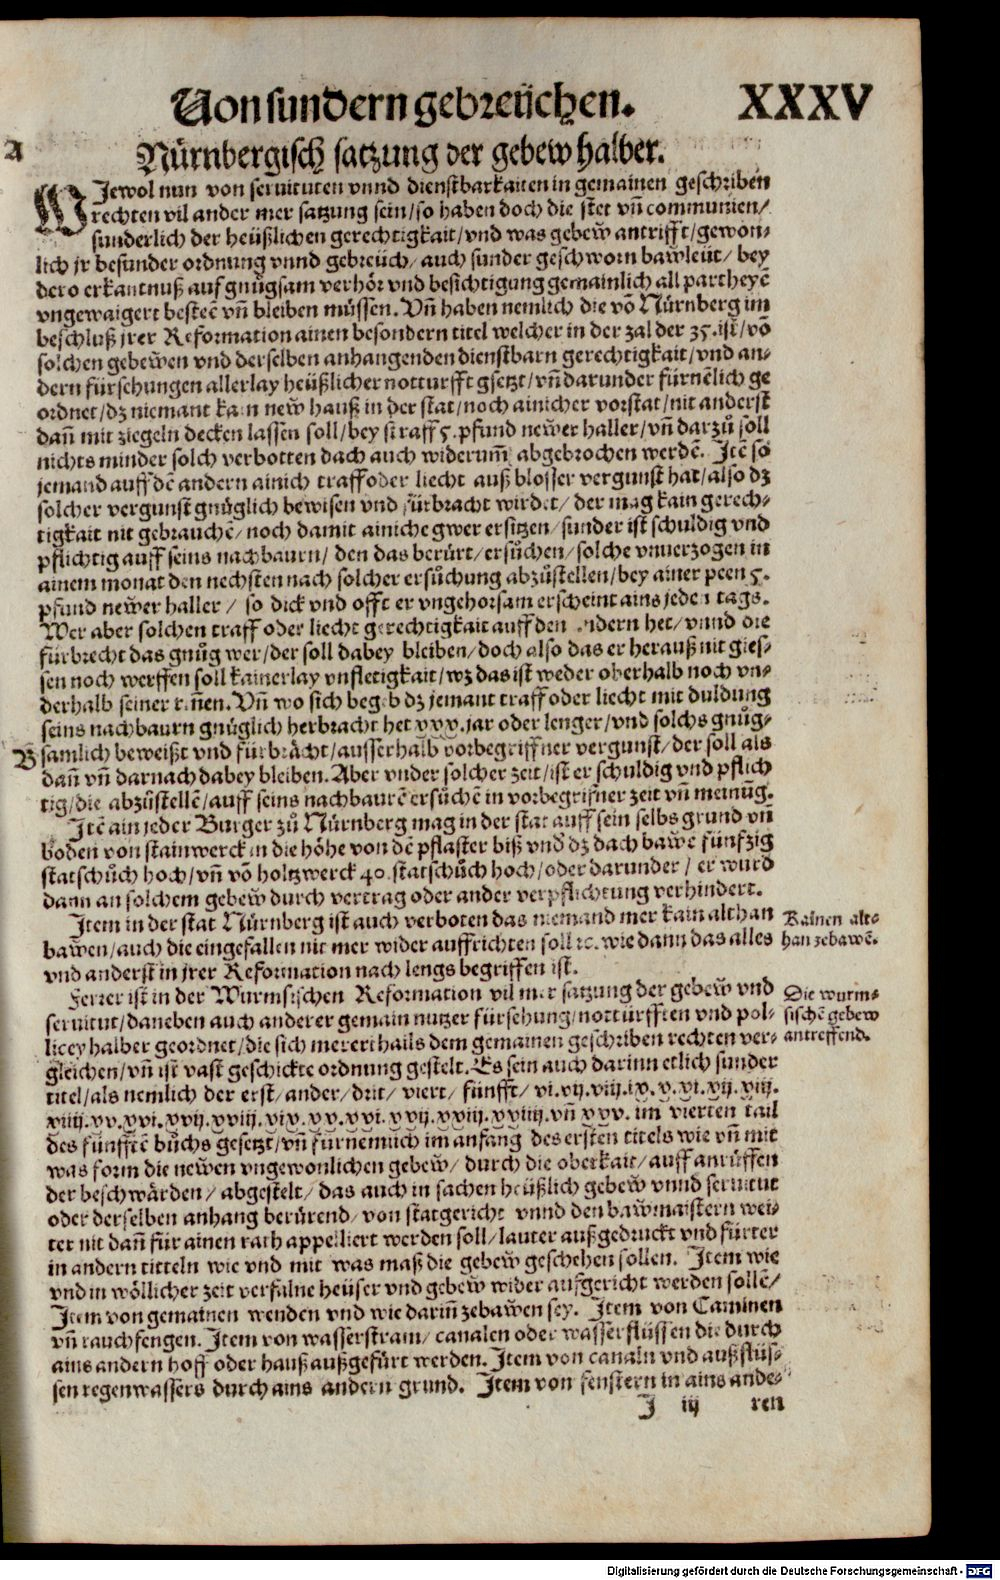 Von sundern gebreüchen. XXXV
A
Nürnbergisch satzung der gebew halber.
WIewol nun von seruituten vnnd dienstbarkaiten in gemainen geschriben
rechten vil ander mer satzung sein/so haben doch die stet vñ communien/
sunderlich der heüßlichen gerechtigkait/vnd was gebew̃ antrifft/gewon-
lich jr besunder ordnung vnnd gebreüch/auch sunder geschworn baw̃leüt/bey
dero erkantnuß auf gnůgsam verhör vnd besichtigung gemainlich all partheyẽ
vngewaigert besteẽ vñ bleiben müssen. Vñ haben nemlich die võ Nürnberg im
beschluß jrer Reformation ainen besondern titel welcher in der zal der 35. ist/võ
solchen gebew̃en vnd derselben anhangenden dienstbarn gerechtigkait/vnd an-
dern fürsehungen allerlay heüßlicher notturfft gsetzt/vñ darunder fürnẽlich ge
ordnet/dz niemant kain new̃ hauß in der stat/noch ainicher vorstat/nit anderst
dañ mit ziegeln decken lassen soll/bey straff 5. pfund new̃er haller/vñ darzů soll
nichts minder solch verbotten dach auch widerum̃ abgebrochen werdẽ. Itẽ so
jemand auff dẽ andern ainich traff oder liecht auß blosser vergunst hat/also dz
solcher vergunst gnůglich bewisen vnd fürbracht wirdet/der mag kain gerech-
tigkait nit gebrauchẽ/noch damit ainiche gwer ersitzen/sunder ist schuldig vnd
pflichtig auff seins nachbaurn/den das berürt/ersůchen/solche vnuerzogen in
ainem monat den nechsten nach solcher ersůchung abzůstellen/bey ainer peen 5.
pfund new̃er haller/so dick vnd offt er vngehorsam erscheint ains jeden tags.
Wer aber solchen traff oder liecht gerechtigkait auff den andern het/vnnd die
fürbrecht das gnůg wer/der soll dabey bleiben/doch also das er herauß nit gies-
sen noch werffen soll kainerlay vnfletigkait/wz das ist weder oberhalb noch vn-
derhalb seiner riñen. Vñ wo sich begeb dz jemant traff oder liecht mit duldung
seins nachbaurn gnůglich herbracht het xxx. jar oder lenger/vnd solchs gnůg-
B
samlich beweißt vnd fürbrächt/ausserhalb vorbegriffner vergunst/der soll als
dañ vñ darnach dabey bleiben. Aber vnder solcher zeit/ist er schuldig vnd pflich
tig/die abzůstellẽ/auff seins nachbaurẽ ersůchẽ in vorbegrifner zeit vñ meinũg.
Itẽ ain jeder Burger zů Nürnberg mag in der stat auff sein selbs grund vñ
boden von stainwerck in die höhe von dẽ pflaster biß vnd̃ dz dach baw̃ẽ fünfzig
statschůch hoch/vñ võ holtzwerck 40. statschůch hoch/oder darunder/er wurd
dann an solchem gebew̃ durch vertrag oder ander verpflichtung verhindert.
Item in der stat Nürnberg ist auch verboten das niemand mer kain althan
baw̃en/auch die eingefallen nit mer wider auffrichten soll ꝛc. wie dann das alles
vnd anderst in jrer Reformation nach lengs begriffen ist.
Kainen alt-
han zebawẽ.
Ferrer ist in der Wurmsischen Reformation vil mer satzung der gebew̃ vnd
seruitut/daneben auch anderer gemain nutzer fürsehung/nottürfften vnd pol-
licey halber geordnet/die sich mererthails dem gemainen geschriben rechten ver-
gleichen/vñ ist vast geschickte ordnung gestelt. Es sein auch darinn etlich sunder
titel/als nemlich der erst/ander/drit/viert/fünfft/vi.vij.viij.ix.x.xi.xij.xiij.
xiiij.xv.xvi.xvij.xviij.xix.xx.xxi.xxij.xxiij.xxiiij. vñ xxv. im vierten tail
des fünfftẽ bůchs gesetzt/vñ fürnemlich im anfang des ersten titels wie vñ mit
was form die new̃en vngewonlichen gebew̃/durch die oberkait/auff anrüffen
der beschwärden/abgestelt/das auch in sachen heüßlich gebew̃ vnnd seruitut
oder derselben anhang berürend/von statgericht vnnd den baw̃maistern wei-
ter nit dañ für ainen rath appelliert werden soll/lauter außgedruckt vnd fürter
in andern titteln wie vnd mit was maß die gebew̃ geschehen sollen. Item wie
vnd in wöllicher zeit verfalne heüser vnd gebew̃ wider aufgericht werden sollẽ/
Item von gemainen wenden vnd wie dariñ zebaw̃en sey. Item von Caminen
vñ rauchfengen. Item von wasserstram/canalen oder wasserflüssen die durch
ains andern hoff oder hauß außgefürt werden. Item von canaln vnd außflüs-
sen regenwassers durch ains andern grund. Item von fenstern in ains ande-
Die wurm-
sischẽ gebew
antreffend.
I iij ren
Digitalisierung gefördert durch die Deutsche Forschungsgemeinschaft - DFG